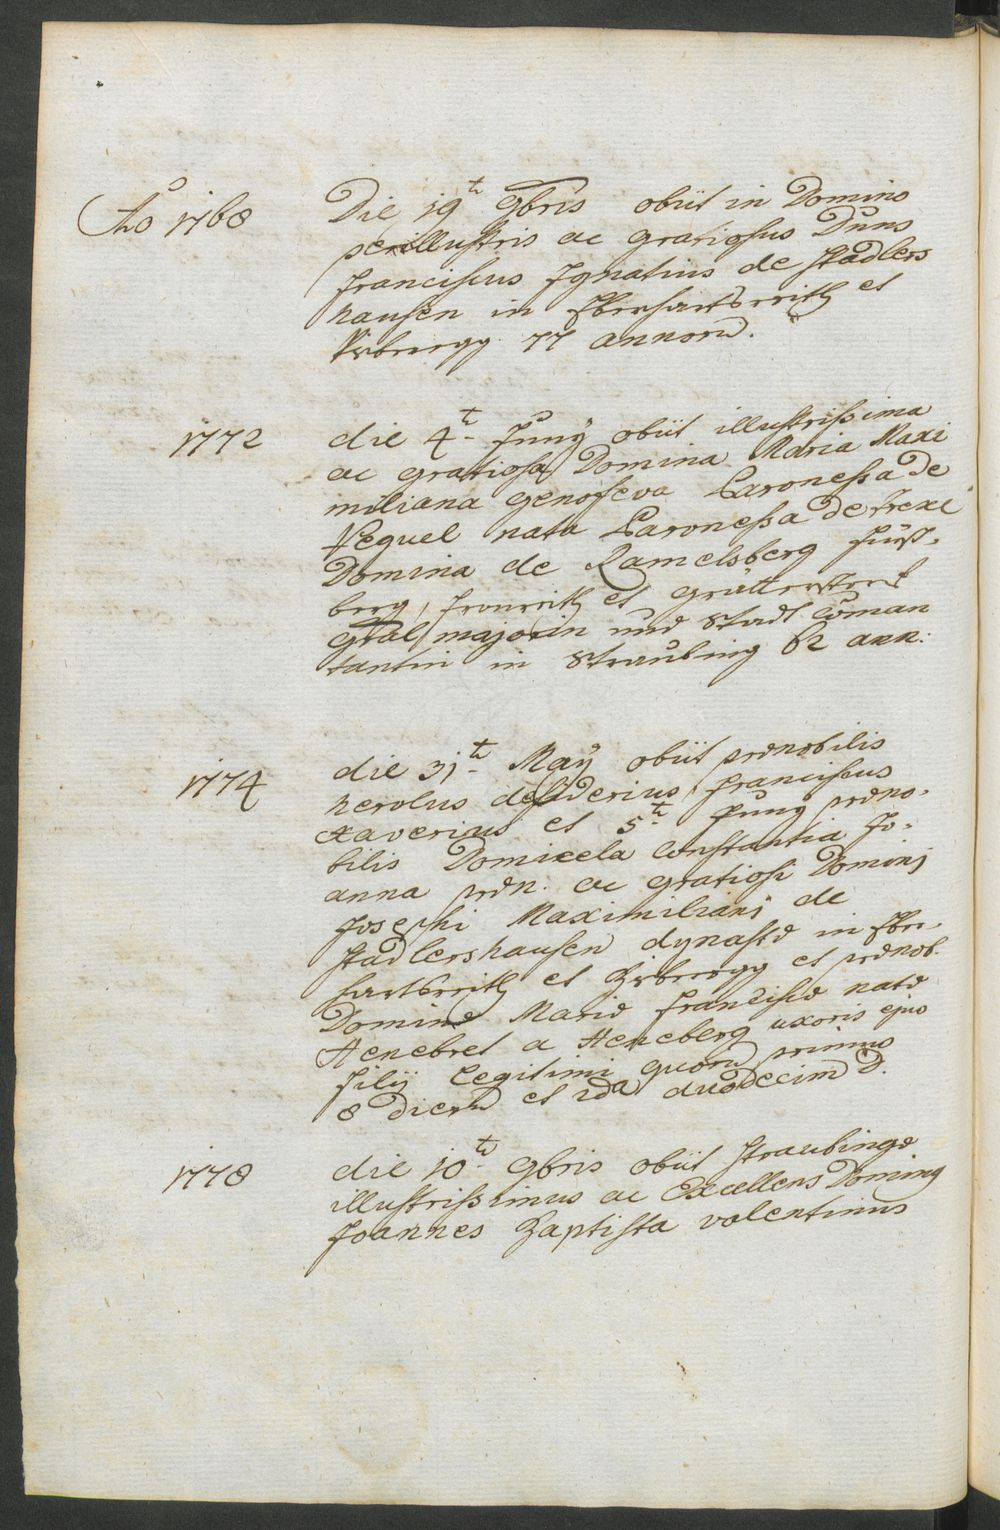 Ao 1768
Die 19t 9bris obiit in Domino
perillustris ac gratiosus Dnns
Franciscus Ignatius de Stadlers
hausen in Ebersartsreith et
77 annorũ.
1772
die 4t Junÿ obiit illustrissima
ac gratiosa Domina Maria Maxi
miliana Genofeva Baronessa de
Vequel nata Baronessa de Drexl
Domina de Ramelsberg Fürst-
berg, et
Gral majorin und Stadt Com̃an
tantin in Straubing 62 ann:
1774
die 31t Maÿ obiit prænobilis
herolus desiderius Franciscus
Xaverius et 5t Junÿ præno-
bilis Domicela Constantia Jo-
anna præn. ac gratiosi Dominj
Josephi Maximilianj de
Stadlershausen dynastæ in Eber-
et et prænob.
Dominæ Mariæ Franciscæ natæ
Henebret a Heneberg uxoris ejus
filÿ legitimi quorũ primus
8 dierũ et 2da duodecim D.
1778
die 10t 9bris obiit Straubingæ
illustrissimus ac Excellens Dominus
Joannes Baptista valentinus